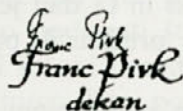 Franc Pirk
Franc Pirk
dekan